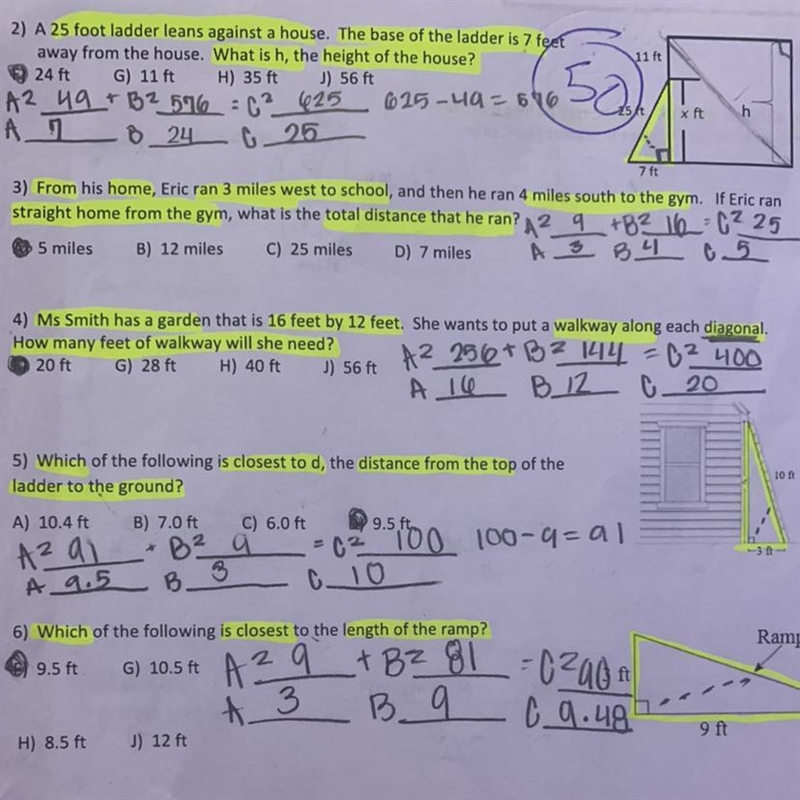 2) A 25 foot ladder leans against a house. The base of the ladder is 7 feet
away from the house. What is h, the height of the house?
24 ft G) 11 ft H) 35 ft J) 56 ft
A² 49 + B² 576 = C² 625 625 - 49 = 576
A 7 B 24 C 25
50
11 ft
25 ft
x ft
h
7 ft
3) From his home, Eric ran 3 miles west to school, and then he ran 4 miles south to the gym. If Eric ran
straight home from the gym, what is the total distance that he ran?
A² 9 + B² 16 = C² 25
5 miles B) 12 miles C) 25 miles D) 7 miles
A 3 B 4 C 5
4) Ms Smith has a garden that is 16 feet by 12 feet. She wants to put a walkway along each diagonal.
How many feet of walkway will she need?
20 ft G) 28 ft H) 40 ft J) 56 ft
A² 256 + B² 144 = C² 400
A 16 B 12 C 20
5) Which of the following is closest to d, the distance from the top of the
ladder to the ground?
10 ft
3 ft
A) 10.4 ft B) 7.0 ft C) 6.0 ft 9.5 ft
A² 91 + B² 9 = C² 100 100 - 9 = 91
A 9.5 B 3 C 10
6) Which of the following is closest to the length of the ramp?
9.5 ft G) 10.5 ft
A² 9 + B² 81 = C² 90 ft
A 3 B 9 C 9.48
Ramp
9 ft
H) 8.5 ft J) 12 ft